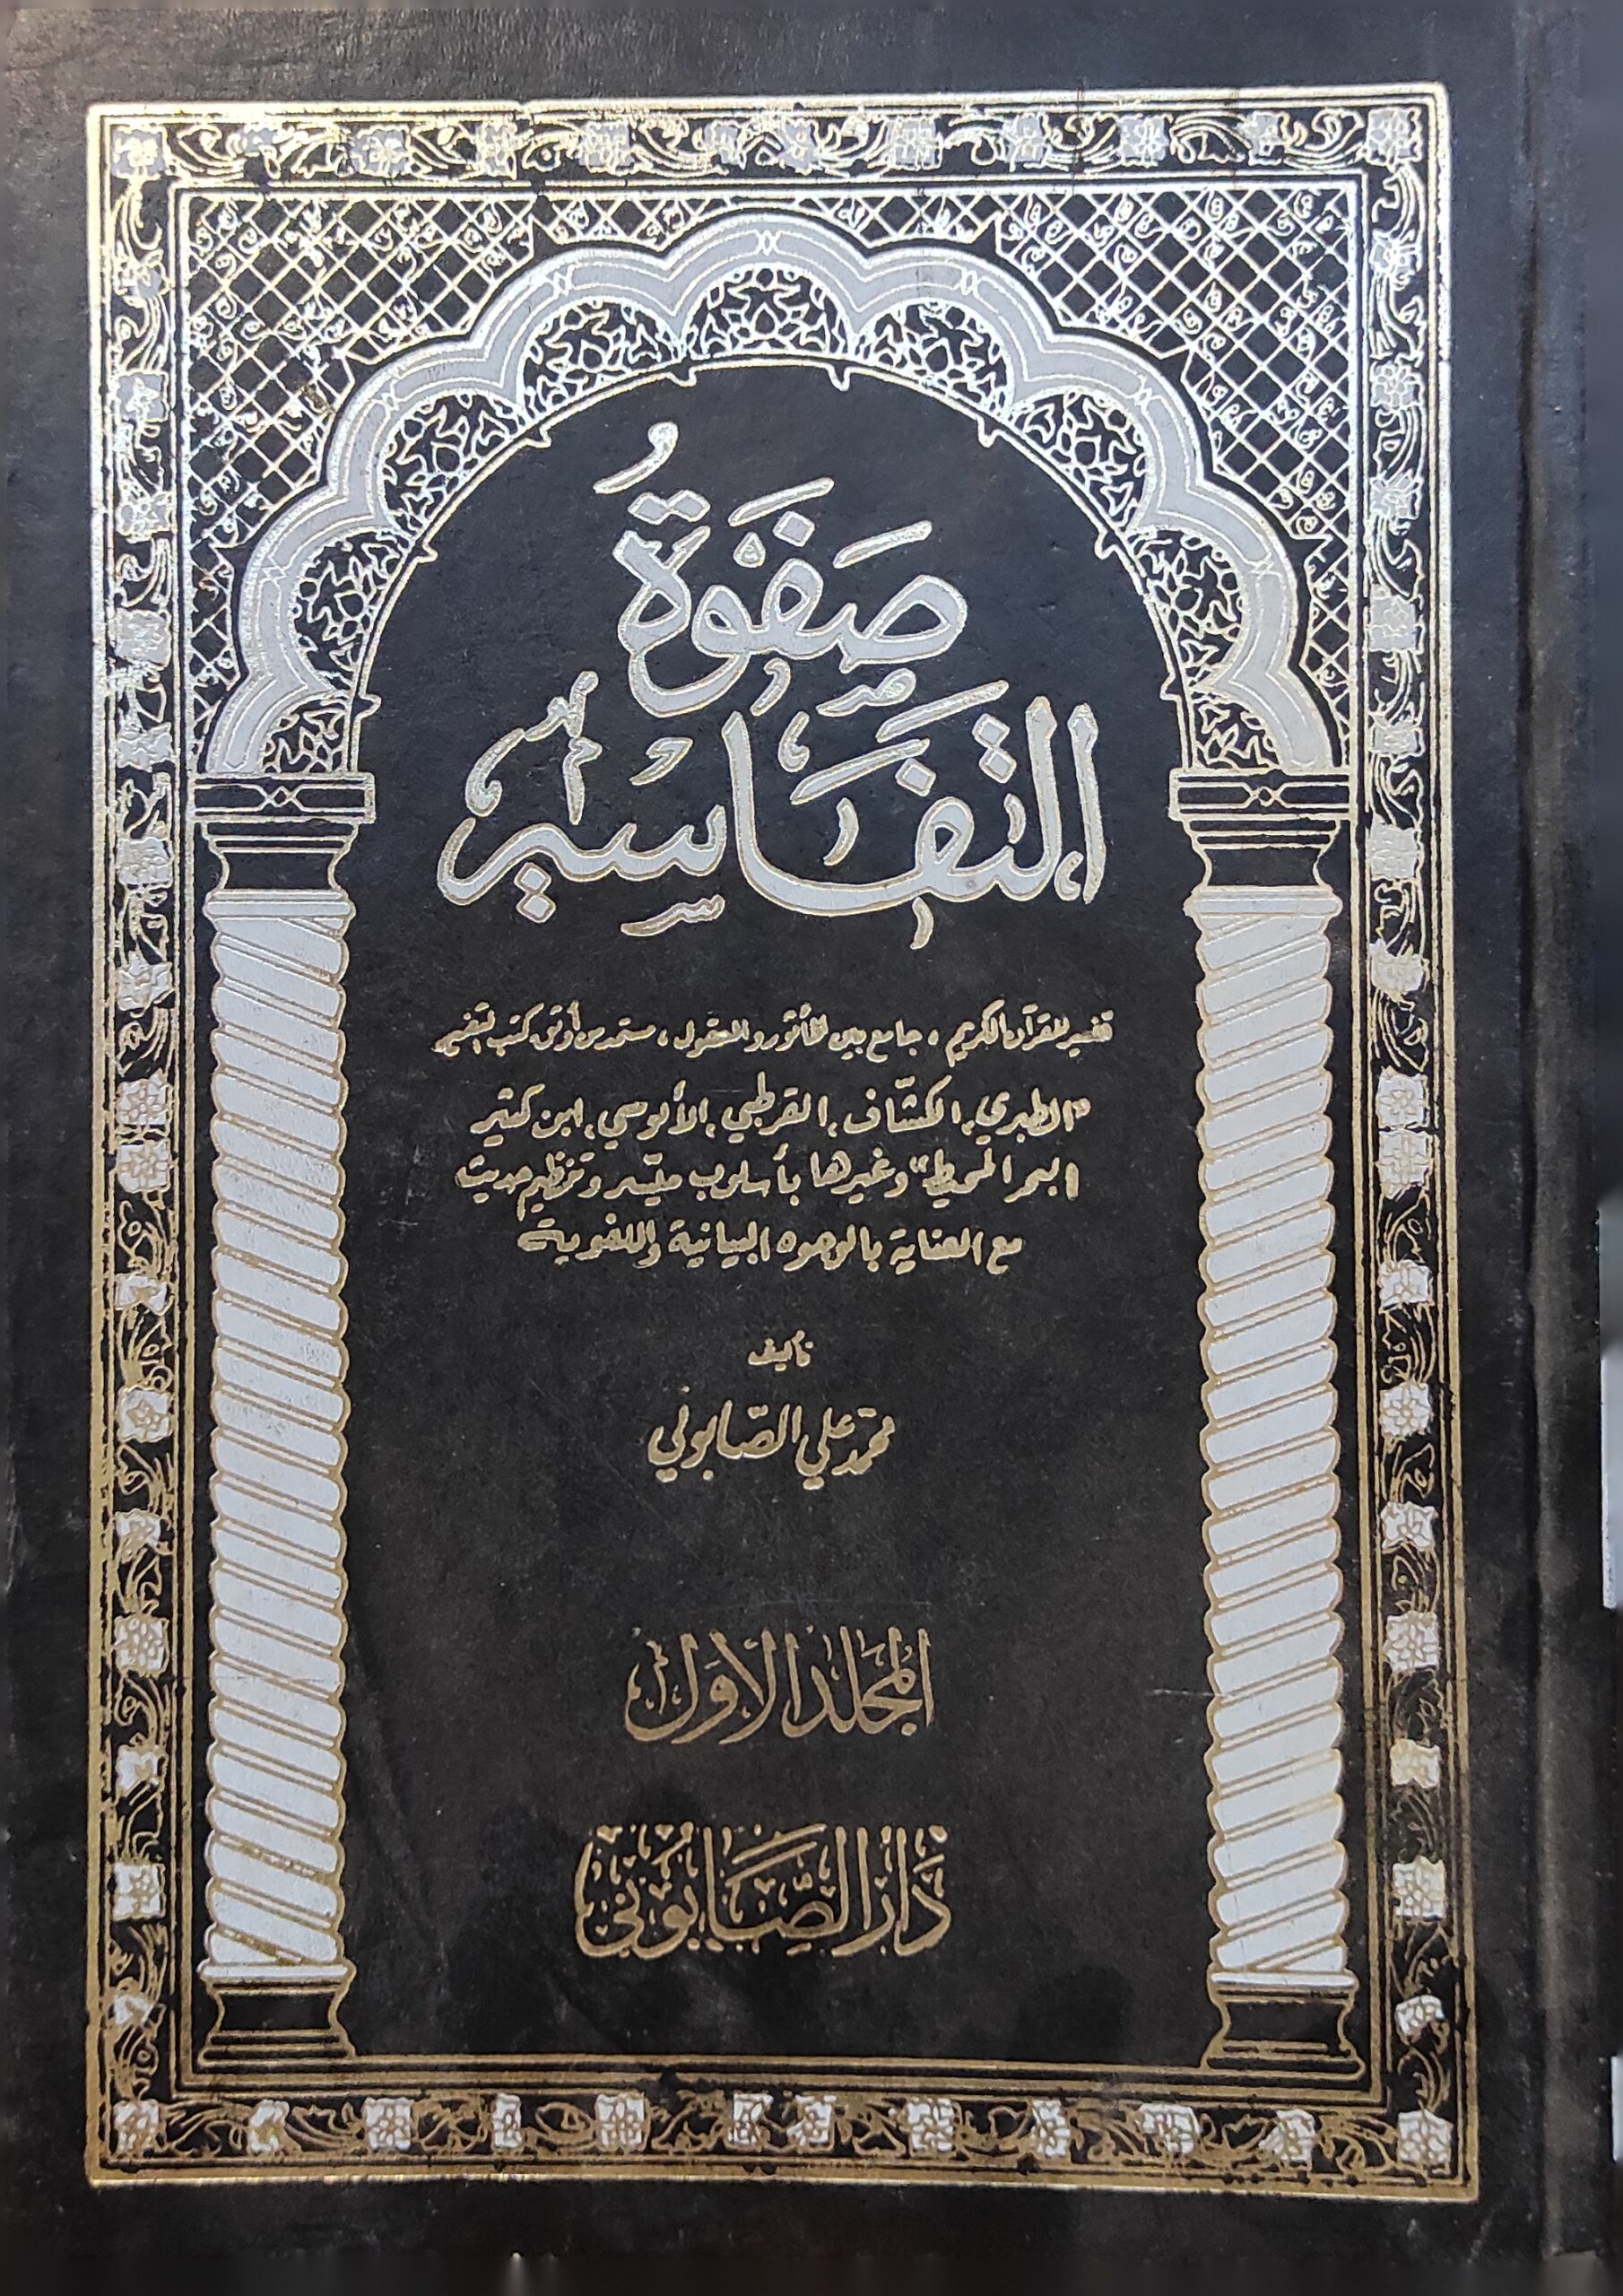 صَفْوَةُ
التَّفَاسِير
تفسير للقرآن الكريم ، جامع بين المأثور والمعقول ، مستمد من أوثق كتب التفسير
"الطبري ، الكشّاف ، القرطبي ، الألوسي ، ابن كثير
البحر المحيط" وغيرها بأسلوب ميسر وتنظيم حديث
مع العناية بالوجوه البيانية واللغوية
تأليف
محمد علي الصّابوني
المجَلد الأوَل
دَارُ الصَّابُوني